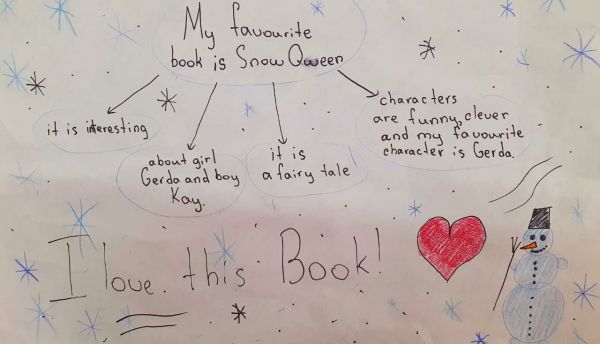 My favourite
book is Snow Qween
it is interesting
about girl
Gerda and boy
Kay.
it is
a fairy tale
characters
are funny, clever
and my favourite
character is Gerda.
I love this Book!